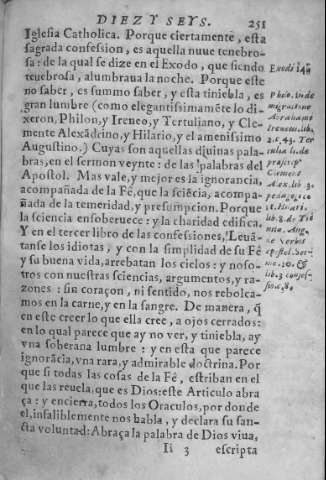 DIEZ Y SEYS. 251
Iglesia Catholica. Porque ciertamente, esta
sagrada confession, es aquella nuue tenebro-
sa: de la qual se dize en el Exodo, que siendo
tenebrosa, alumbraua la noche. Porque este
no saber, es summo saber, y esta tiniebla, es
gran lumbre (como elegantissimamẽte lo di-
xeron, Philon, y Ireneo, y Tertuliano, y Cle-
mente Alexãdrino, y Hilario, y el amenissimo
Augustino.) Cuyas son aquellas diuinas pala-
bras, en el sermon veynte: de las palabras del
Apostol. Mas vale, y mejor es la ignorancia,
acompañada de la Fê, que la sciẽcia, acompa-
ñada de la temeridad, y presumpcion. Porque
la sciencia ensoberuece: y la charidad edifica.
Y en el tercer libro de las confessiones, Leuã-
tanse los idiotas, y con la simplidad de su Fê
y su buena vida, arrebatan los cielos: y noso-
tros con nuestras sciencias, argumentos, y ra-
zones: sin coraçon, ni sentido, nos rebolca-
mos en la carne, y en la sangre. De manera, q̃
en este creer lo que ella cree, a ojos cerrados:
en lo qual parece que ay no ver, y tiniebla, ay
vna soberana lumbre: y en esta que parece
ignorãcia, vna rara, y admirable doctrina. Por
que si todas las cosas de la Fê, estriban en el
que las reuela, que es Dios: este Articulo abra
ça: y encierra, todos los Oraculos, por donde
el, infaliblemente nos habla, y declara su san-
cta voluntad: Abraça la palabra de Dios viua,
Ii 3 escripta
Exodi 14.
Philo. li. de
migratione
Abrahami
Ireneus lib.
2. c. 45. Ter
Clement
Alex. lib. 3.
pedagogo
lib. 8. de Tri
Augu.
de verbis
Apostol. Ser-
mo. 20. Et
lib. 3 confes-